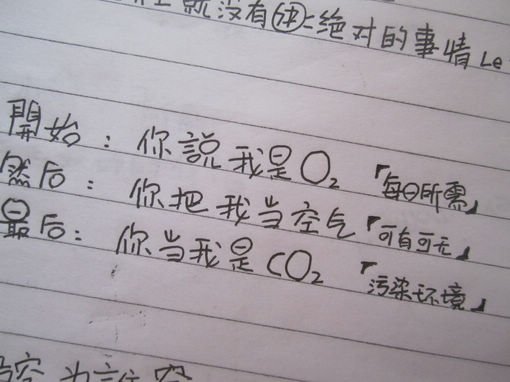 就没有㊉=绝对的事情 Le
開始：你說我是O₂「每日所需」
然后：你把我当空气「可有可无」
最后：你当我是CO₂「污染环境」